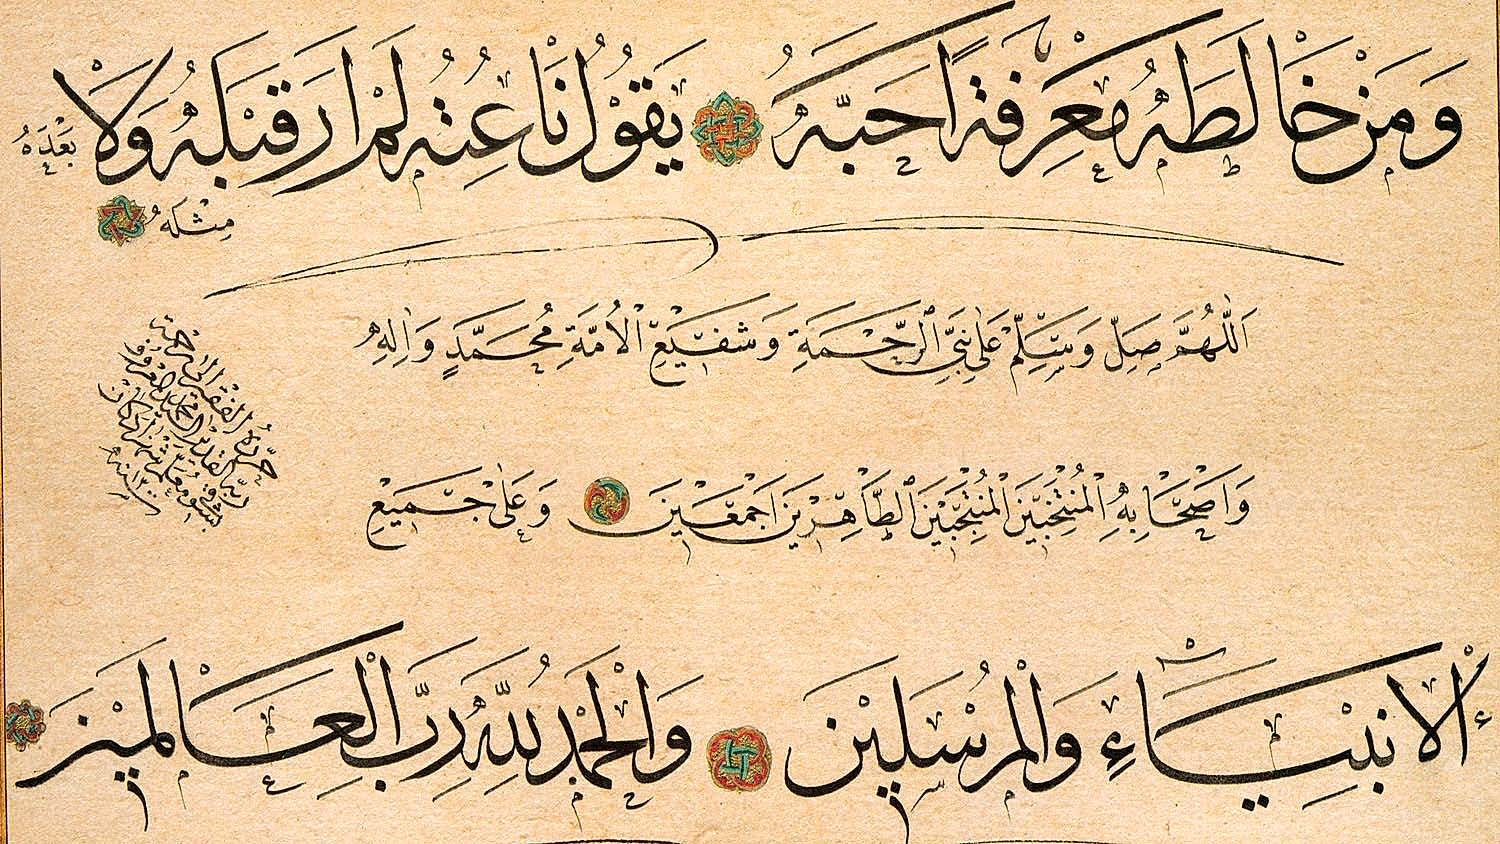 وَمَنْ خَالَطَهُ مَعْرِفَةً اَحَبَّهُ يَقُولُ نَاعِتُهُ لَمْ اَرَ قَبْلَهُ وَلَا بَعْدَهُ
مِثْلَهُ
اَللّٰهُمَّ صَلِّ وَسَلِّمْ عَلٰى نَبِيِّ الرَّحْمَةِ وَشَفِيعِ الْاُمَّةِ مُحَمَّدٍ وَاٰلِهِ
وَاَصْحَابِهِ الْمُنْتَخَبِينَ الْمُنْتَجَبِينَ الطَّاهِرِينَ اَجْمَعِينَ وَعَلٰى جَمِيعِ
الْاَنْبِيَاءِ وَالْمُرْسَلِينَ وَالْحَمْدُ لِلّٰهِ رَبِّ الْعَالَمِينَ
حرره الفقير الى رحمة
ربه القدير